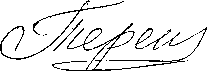 Терещ